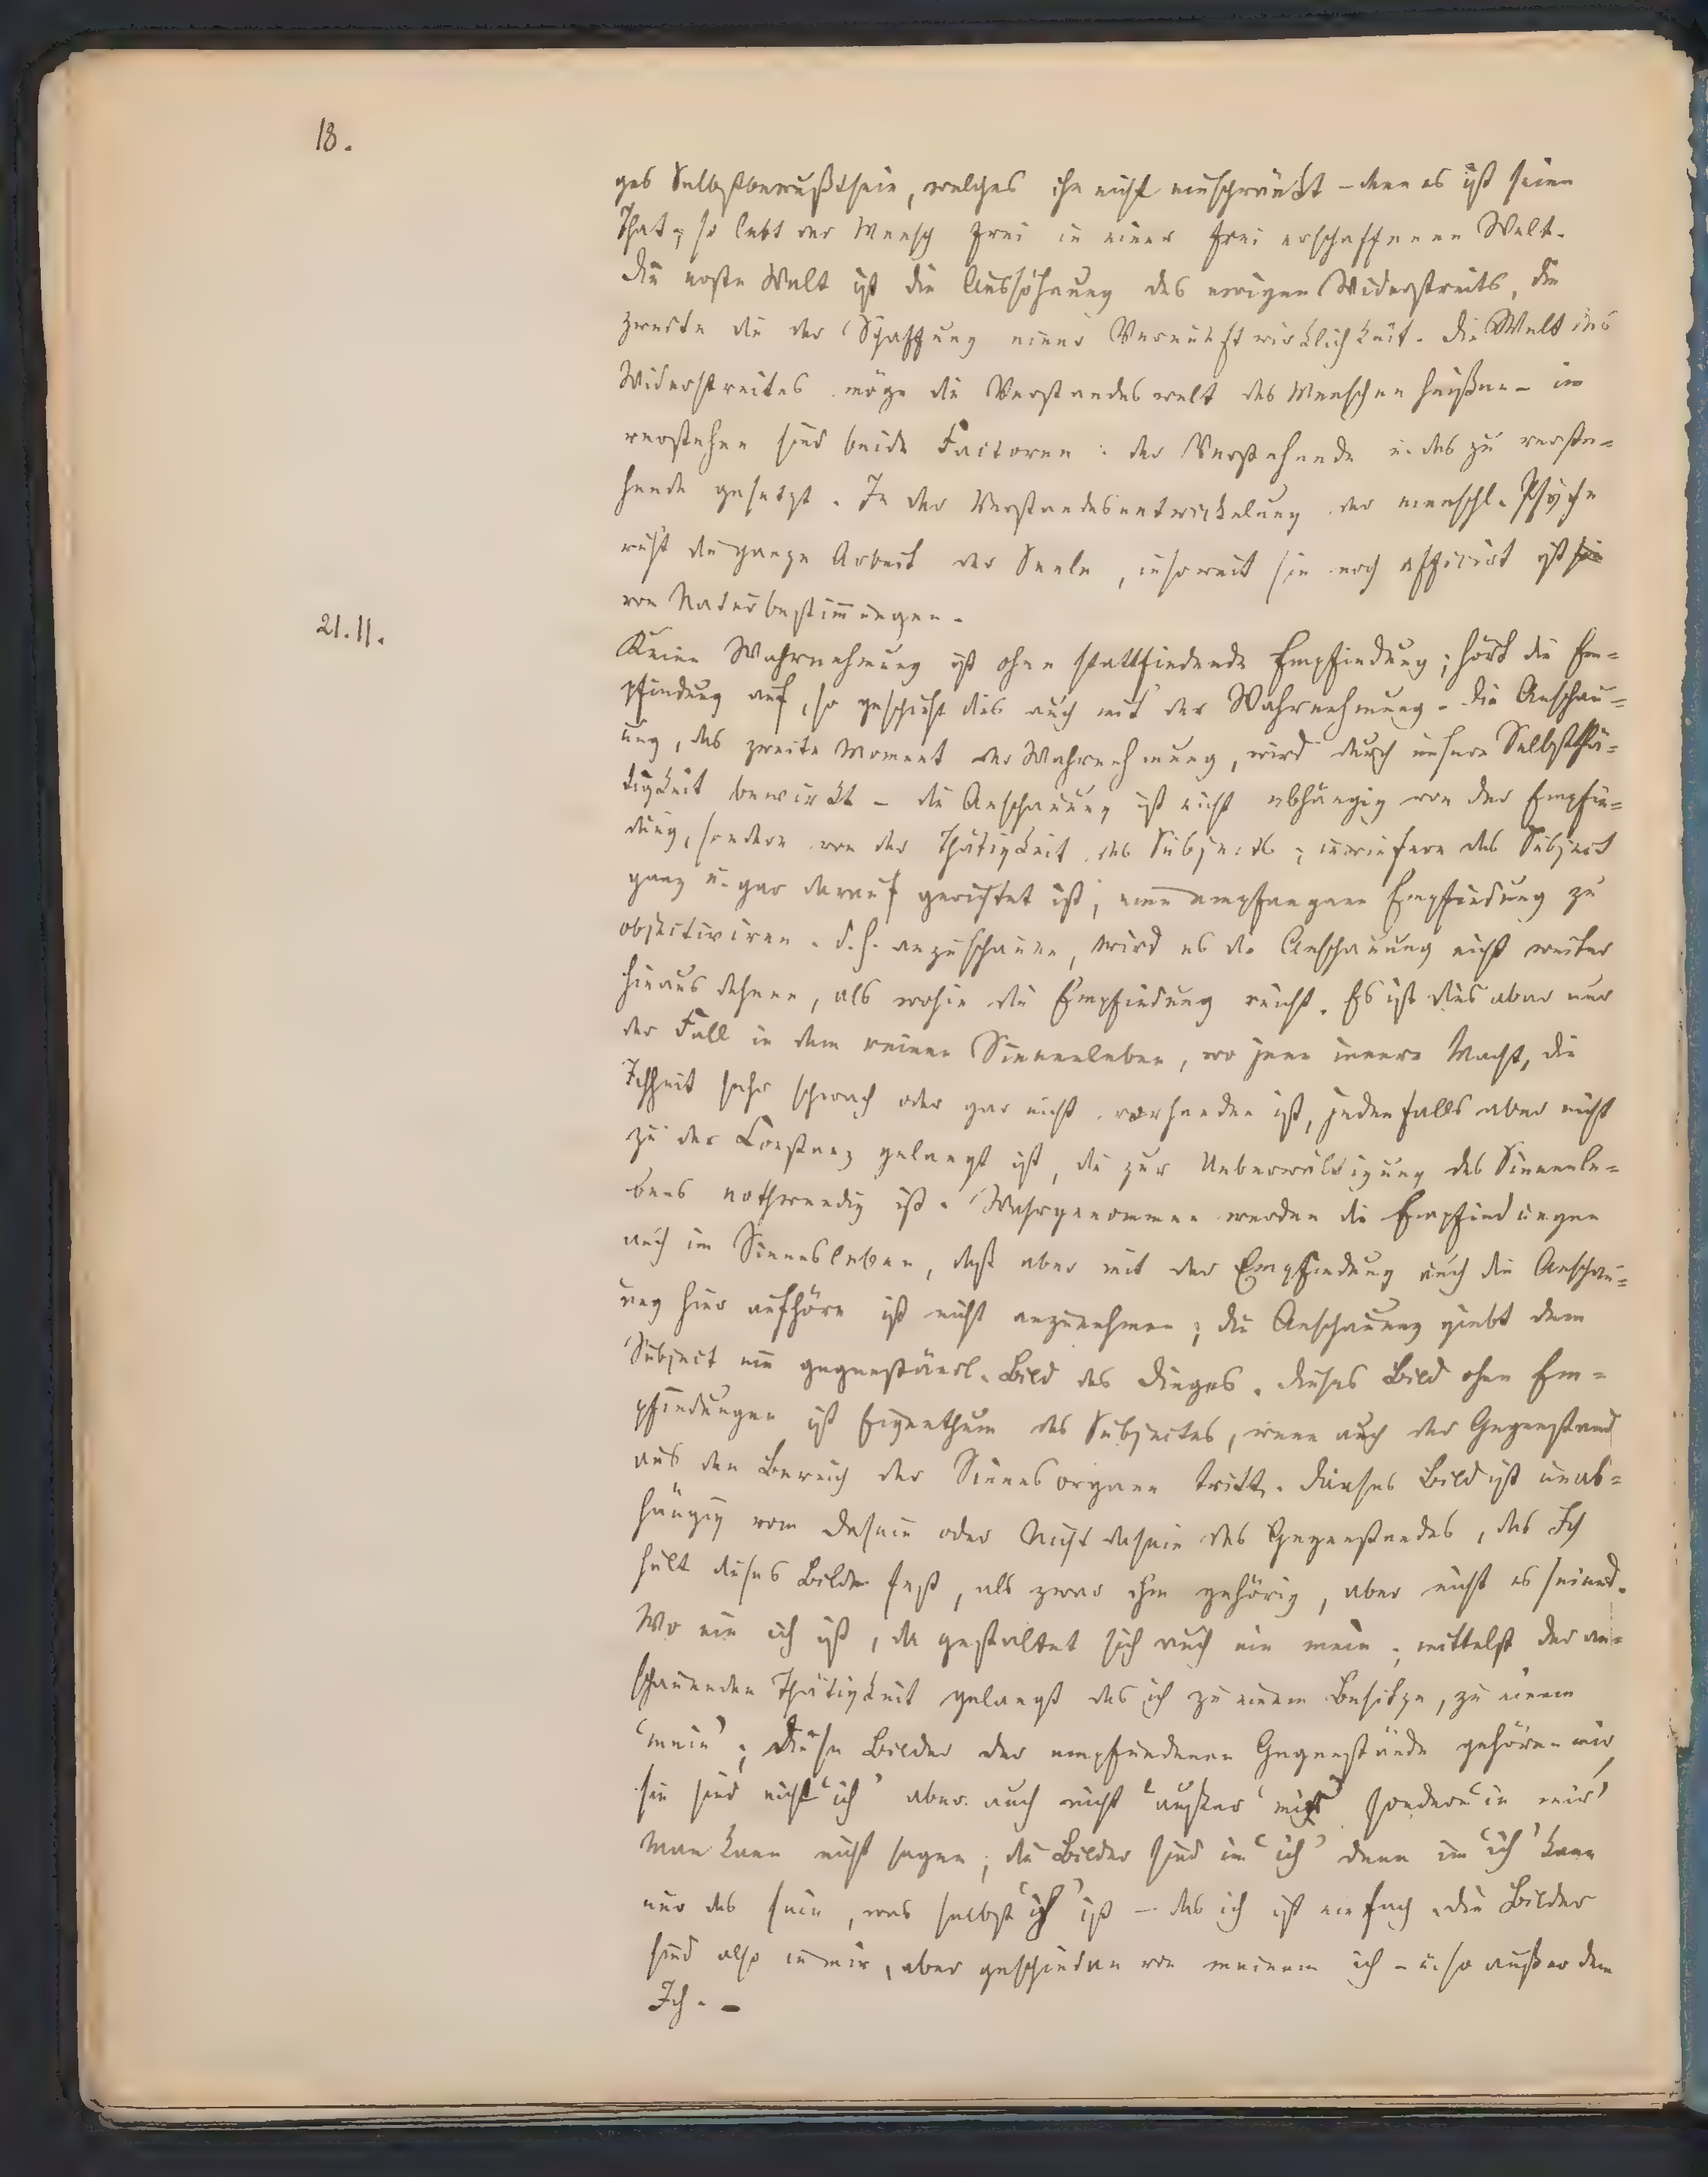 18.
ges Selbstbewußtsein, welches ihn nicht einschränkt – denn es ist seine
That; so lebt der Mensch frei in einer frei erschaffenen Welt.
Die erste Welt ist die Aussöhnung des ewigen Widerstreits, die
zweite die der Schaffung einer Vernunftwirklichkeit. Die Welt des
Widerstreites möge die Verstandeswelt des Menschen heißen – im
verstehen sind beide Factoren: der Verstehende u. das zu verste=
hende gesetzt. In der Verstandesentwickelung der menschl. Psyche
ruht die ganze Arbeit der Seele, insoweit sie noch afficirt ist
von Naturbestimungen.
21.11.
Keine Wahrnehmung ist ohne stattfindende Empfindung; hört die Em=
pfindung auf, so geschieht dies auch mit der Wahrnehmung. Die Anschau=
ung, das zweite Moment der Wahrnehmung, wird durch unsere Selbstthä=
tigkeit bewirkt – die Anschauung ist nicht abhängig von der Empfin=
dung, sondern von der Thätigkeit des Subjects; inwiefern das Subject
ganz u. gar darauf gerichtet ist, eine empfangene Empfindung zu
objectiviren. d. h. anzuschauen, wird es die Anschauung nicht weiter
hinaus dehnen, als wohin die Empfindung reicht. Es ist dies aber nur
der Fall in dem reinen Sinnenleben, wo jene innere Macht, die
Ichheit sehr schwach oder gar nicht vorhanden ist, jedenfalls aber nicht
zu der Constanz gelangt ist, die zur Ueberwältigung des Sinnenle=
bens nothwendig ist. Wahrgenommen werden die Empfindungen
auch im Sinnesleben, daß aber mit der Empfindung auch die Anschau=
ung hier aufhöre ist nicht anzunehmen; die Anschauung giebt dem
Subject ein gegenständl. Bild des Dinges. Dieses Bild ohne Em=
pfindungen ist Eigenthum des Subjectes, wenn auch der Gegenstand
aus den Bereich der Sinnesorgane tritt. Dieses Bild ist unab=
hängig vom Dasein oder Nichtdasein des Gegenstandes, das Ich
hält dieses Bild fest, als zwar ihm gehörig, aber nicht es seiend.
Wo ein ich ist, da gestaltet sich auch ein mein; mittelst der an=
schauenden Thätigkeit gelangt das ich zu einem Besitze, zu einem
‘mein’; Diese Bilder der empfundenen Gegenstände gehören mir,
sie sind nicht ‘ich’ aber auch nicht ‘außer mir’ sondern ‘in mir’
Man kann nicht sagen; die Bilder sind im ‘ich’ denn im ‘ich’ kann
nur das sein, was selbst ‘ich’ ist – das ich ist einfach. die Bilder
sind also in mir, aber geschieden von meinem ich – u. so außer dem
Ich. –